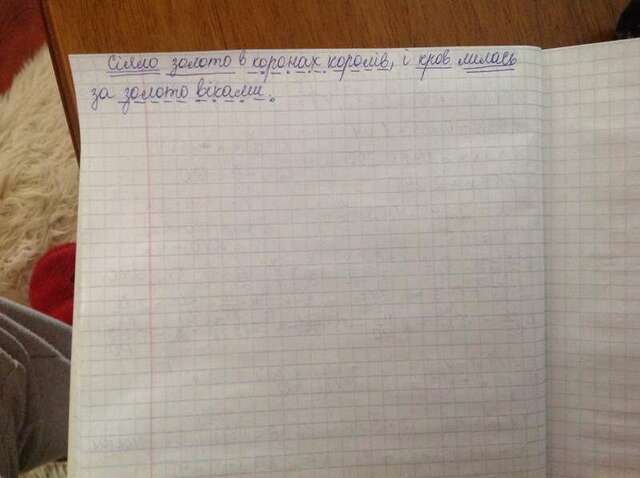 Сіяло золото в коронах королів, і кров лилась
за золото віками.